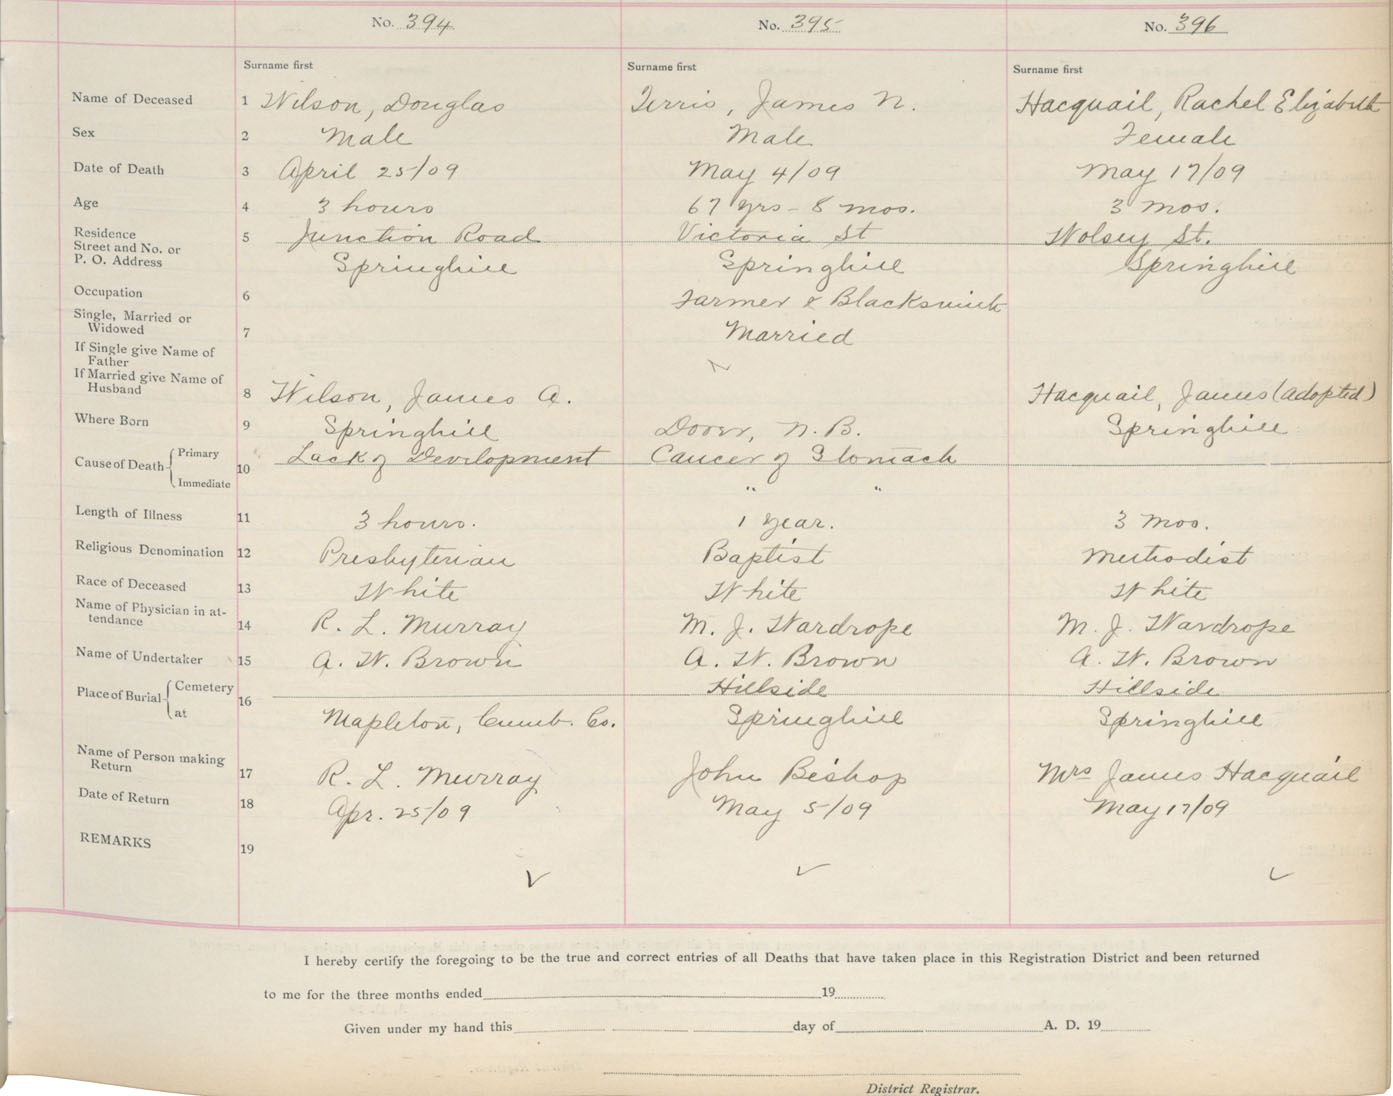 No. 394 No. 395 No. 396
Surname first Surname first Surname first
Name of Deceased 1 Wilson, Douglas Terris, James N. Hacquail, Rachel Elizabeth
Sex 2 Male Male Female
Date of Death 3 April 25/09 May 4/09 May 17/09
Age 4 3 hours 67 yrs - 8 mos. 3 mos.
Residence 5 Junction Road Victoria St Wolsey St.
Street and No. or
P. O. Address Springhill Springhill Springhill
Occupation 6 Farmer & Blacksmith
Single, Married or
Widowed 7 Married
If Single give Name of
Father
If Married give Name of
Husband 8 Wilson, James A. Hacquail, James (adopted)
Where Born 9 Springhill Dover, N.B. Springhill
Cause of Death Primary 10 Lack of Development Cancer of Stomach
Immediate " "
Length of Illness 11 3 hours. 1 year. 3 mos.
Religious Denomination 12 Presbyterian Baptist Methodist
Race of Deceased 13 White White White
Name of Physician in at-
tendance 14 R. L. Murray M. J. Wardrope M. J. Wardrope
Name of Undertaker 15 A. W. Brown A. W. Brown A. W. Brown
Place of Burial Cemetery 16 Hillside Hillside
at Mapleton, Cumb. Co. Springhill Springhill
Name of Person making
Return 17 R. L. Murray John Bishop Mrs James Hacquail
Date of Return 18 Apr. 25/09 May 5/09 May 17/09
REMARKS 19
I hereby certify the foregoing to be the true and correct entries of all Deaths that have taken place in this Registration District and been returned
to me for the three months ended 19
Given under my hand this day of A. D. 19
District Registrar.